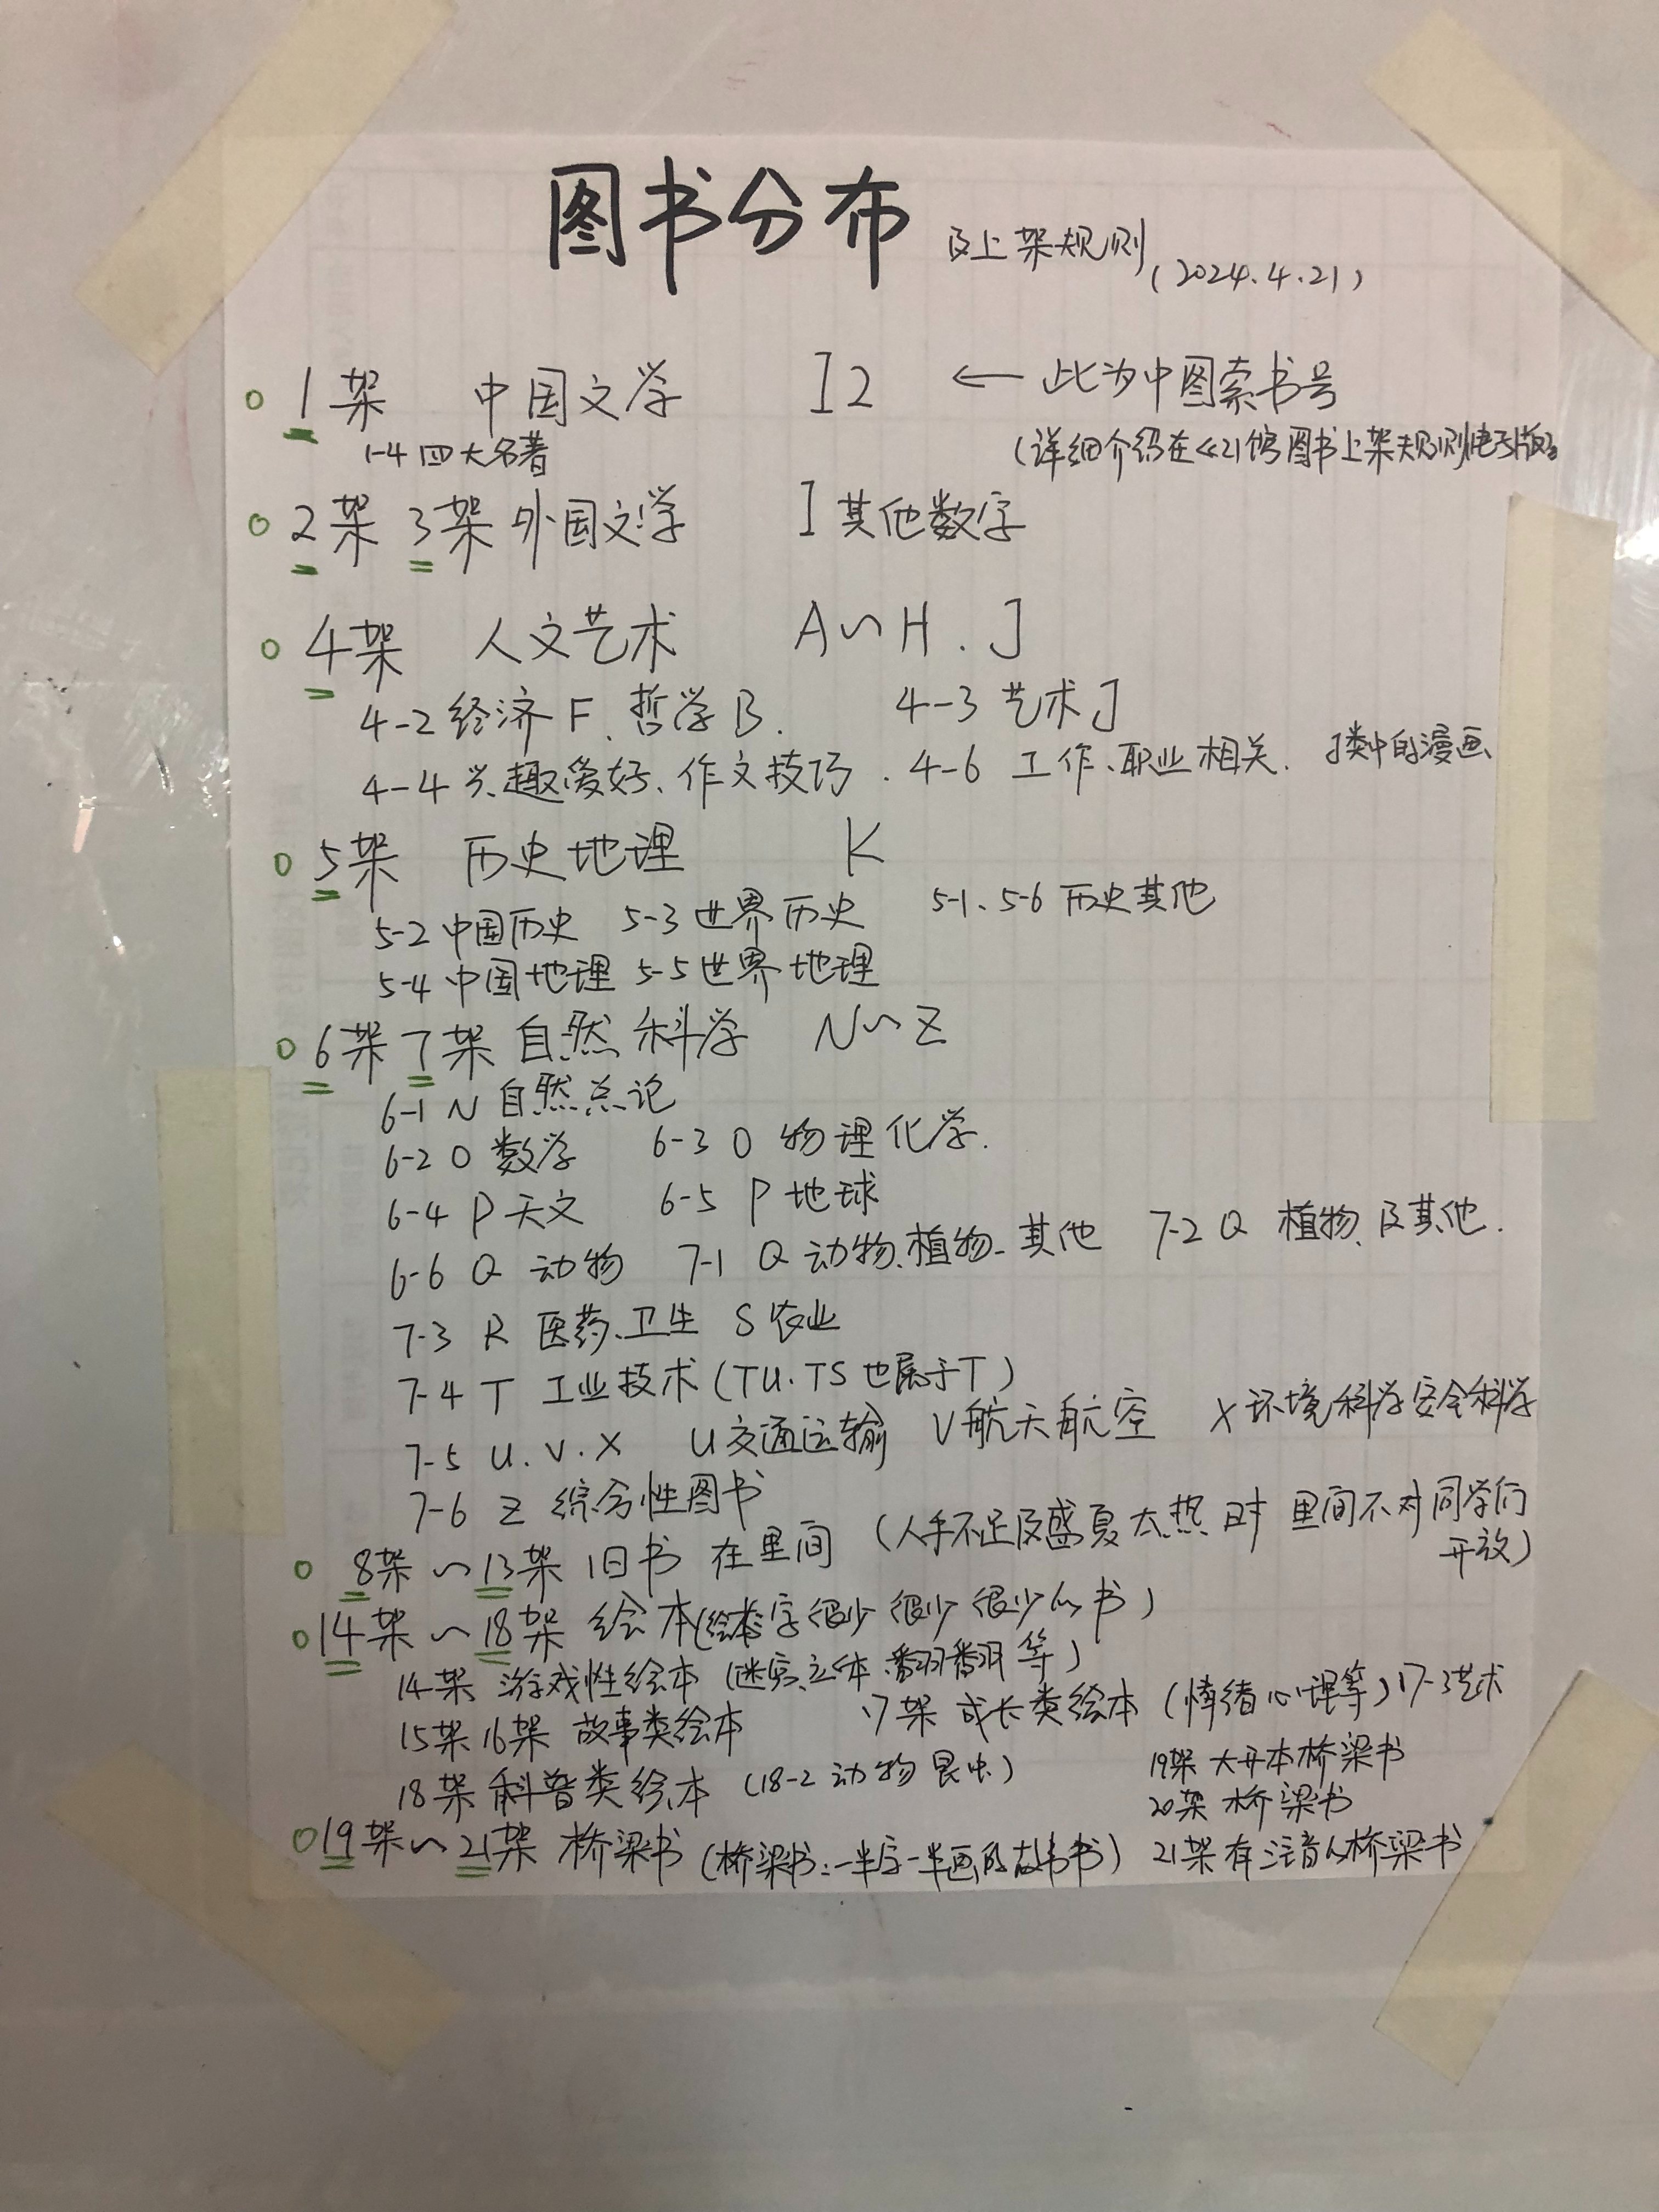 图书分布 及上架规则(2024.4.21)
1架 中国文学 I2 ← 此为中图索书号
1-4 四大名著 (详细介绍在《21馆图书上架规则电子版》
2架 3架 外国文学 I 其他数字
4架 人文艺术 A~H.J
4-2 经济F、哲学B. 4-3 艺术J
4-4 兴趣爱好、作文技巧. 4-6 工作、职业相关. J类中的漫画
5架 历史地理 K
5-2 中国历史 5-3 世界历史 5-1、5-6 历史其他
5-4 中国地理 5-5 世界地理
6架 7架 自然科学 N~Z
6-1 N 自然总论
6-2 O 数学 6-3 O 物理化学.
6-4 P 天文 6-5 P 地球
6-6 Q 动物 7-1 Q 动物、植物、其他 7-2 Q 植物、及其他.
7-3 R 医药、卫生 S 农业
7-4 T 工业技术(TU.TS也属于T)
7-5 U.V.X U交通运输 V航天航空 X环境科学安全科学
7-6 Z 综合性图书
8架~13架 旧书 在里间 (人手不足及盛夏太热时 里间不对同学们
开放)
14架~18架 绘本(绘本:字很少很少很少的书)
14架 游戏性绘本 (迷宫、立体、翻翻等)
15架 16架 故事类绘本 17架 成长类绘本 (情绪心理等) 17-3艺术
18架 科普类绘本 (18-2 动物昆虫)
19架 大开本桥梁书
20架 桥梁书
19架~21架 桥梁书 (桥梁书:一半字一半画的故事书) 21架 有注音的桥梁书